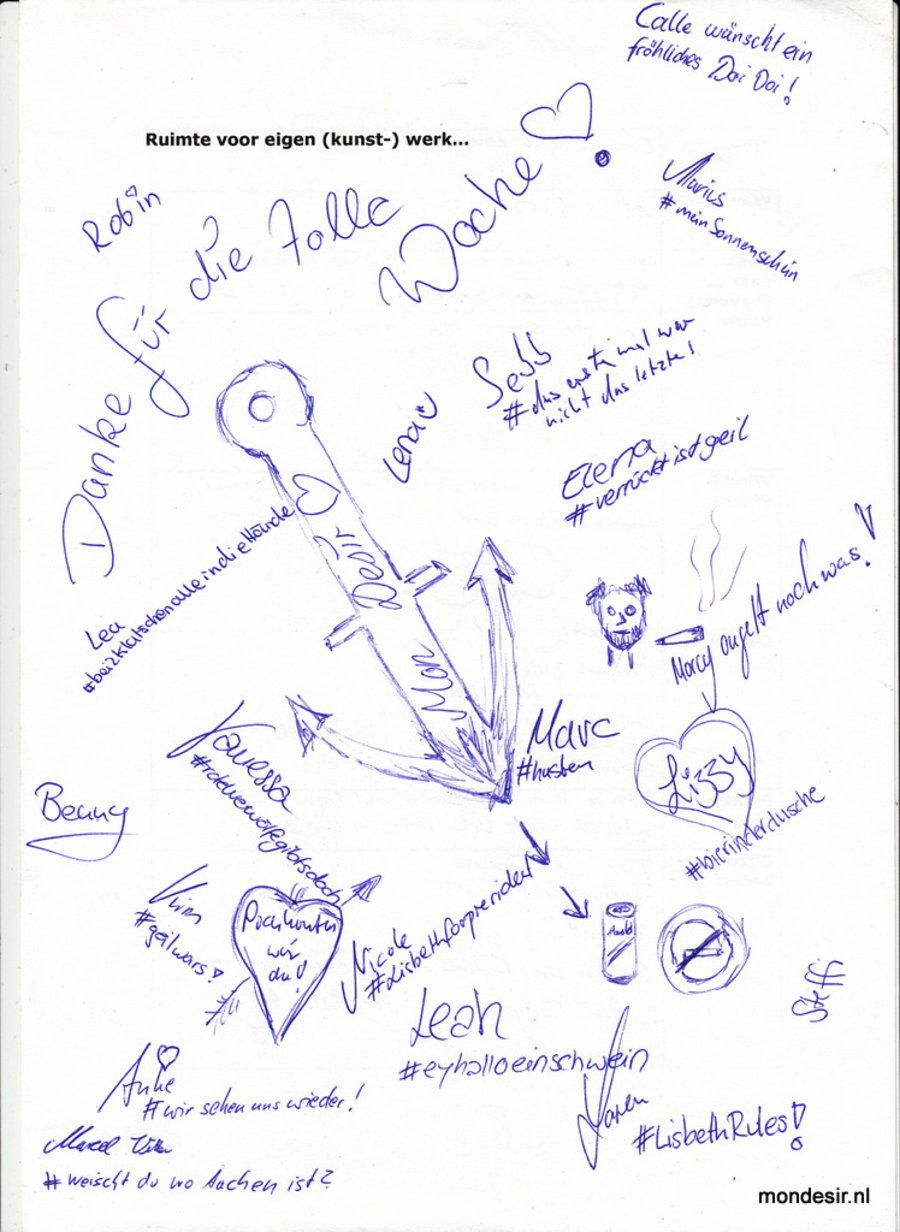 Calle wünscht ein
fröhliches Doi Doi!
Ruimte voor eigen (kunst-) werk...
Robin
Danke für die tolle
Woche
Marius
#meinSonnenschein
Lena
Sebb
#das erste mal war
nicht das letzte!
Elena
#verrücktistgeil
Lea
#bei2klatschenalleindieHände
Mon
Desir
Marcy angelt noch was!
Lizzy
#bierinderdusche
Marc
#husten
Vanessa
Benny
#geilwars!
Pocahontas
wir
du!
Nicole
#Lisbethforpresident
Steffi
Leah
#eyhalloeinschwein
Anke
#wir sehen uns wieder!
Karen
#LisbethRules!
Marcel
#weischt du wo Aachen ist?
mondesir.nl